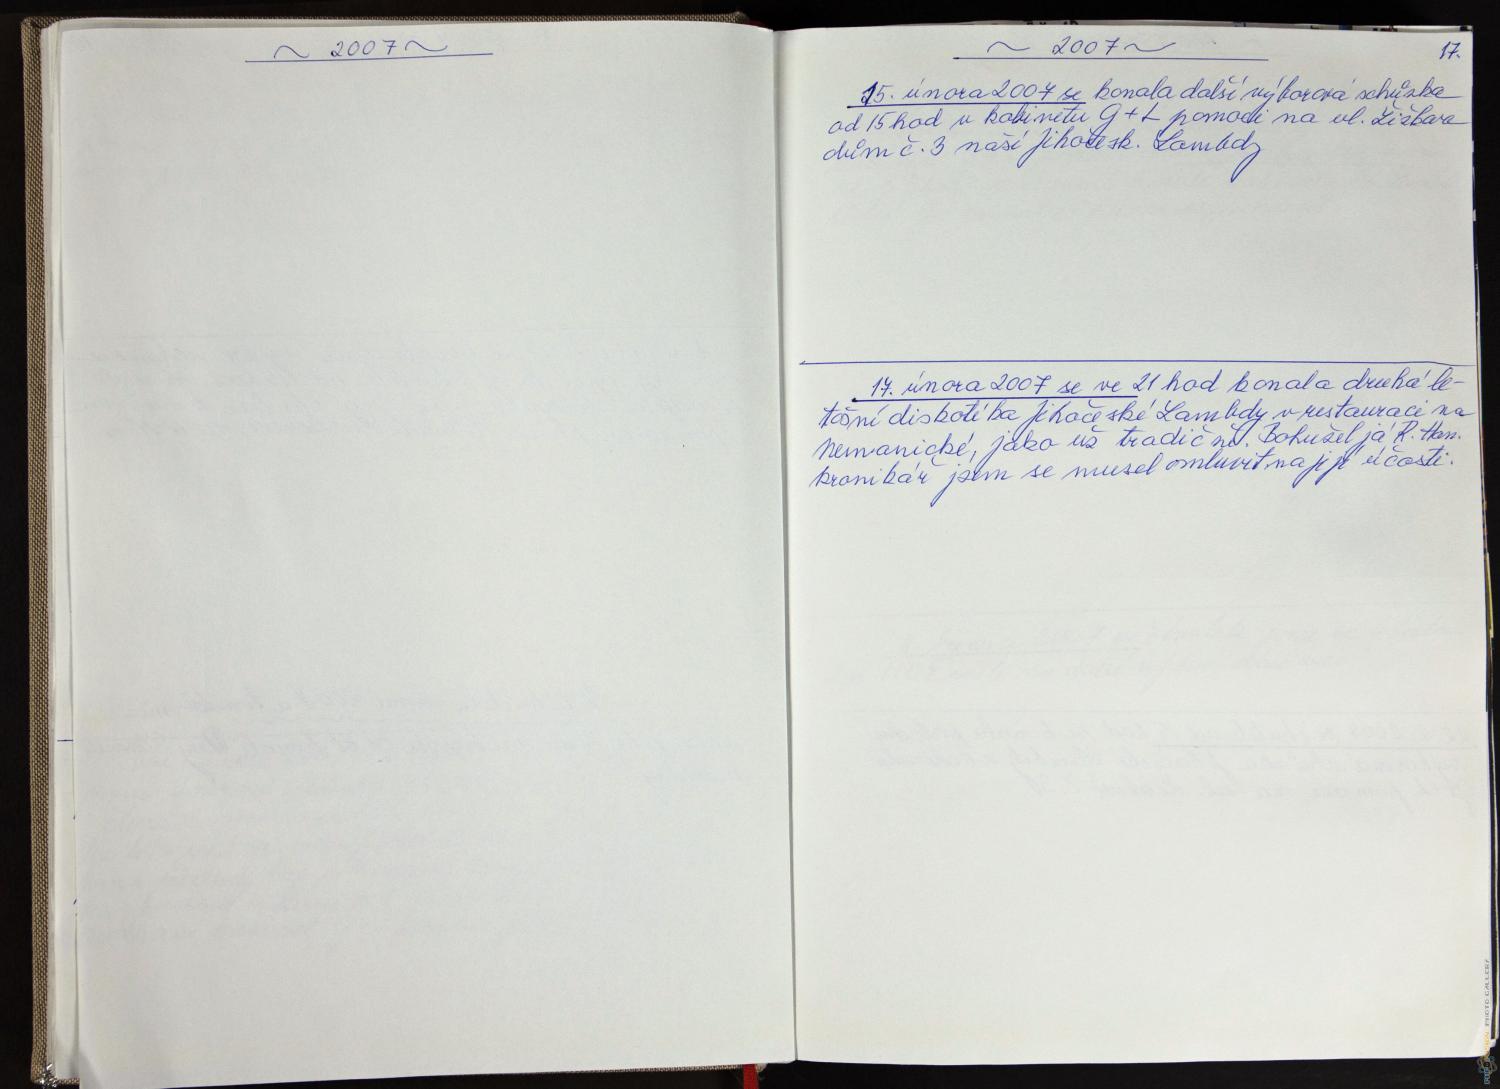 ~ 2007 ~
~ 2007 ~
17.
15. února 2007 se konala další výborová schůzka
od 15 hod v kabinetu G+L pomoci na ul. Žižkova
dům č. 3 naší Jihočesk. Lambdy
17. února 2007 se ve 21 hod konala druhá le-
tošní diskotéka Jihočeské Lambdy v restauraci na
Nemanické, jako už tradičně. Bohužel já R. Han.
kronikář jsem se musel omluvit na její účasti.